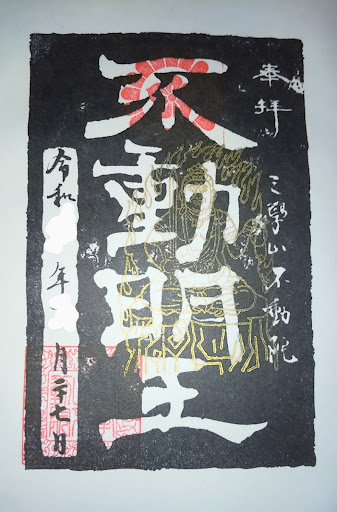 奉拝
三學山不動
不動明王
令和 年 月二十七日